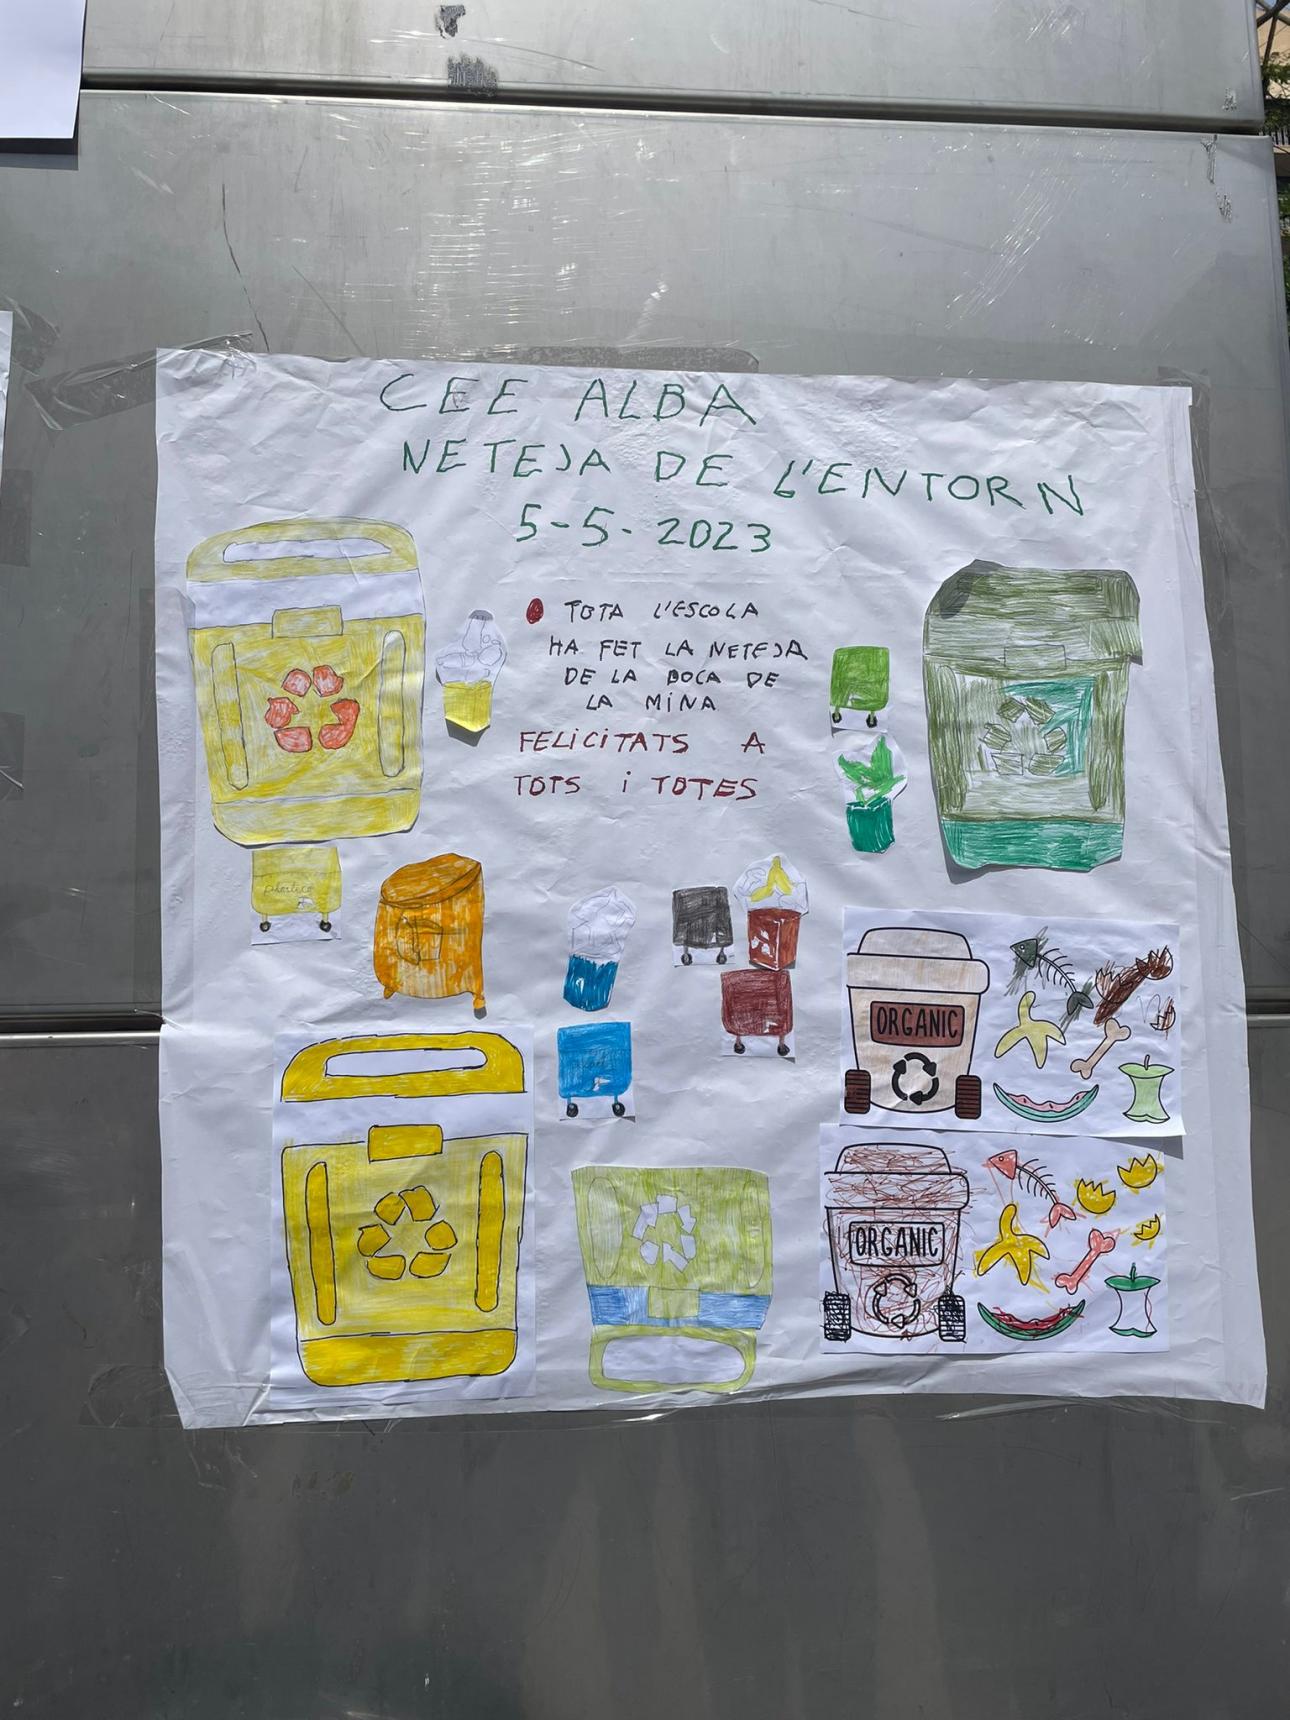 CEE ALBA
NETEJA DE L'ENTORN
5-5-2023
TOTA L'ESCOLA
HA FET LA NETEJA
DE LA BOCA DE
LA MINA
FELICITATS A
TOTS i TOTES
ORGANIC
ORGANIC